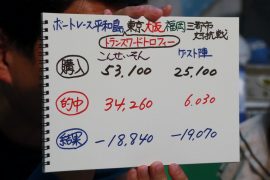 ボートレース平和島 東京大阪福岡三都市対抗戦
トランスワードトロフィー
こんせいそん ゲスト陣
購入 53,100 25,100
的中 34,260 6,030
結果 -18,840 -19,070